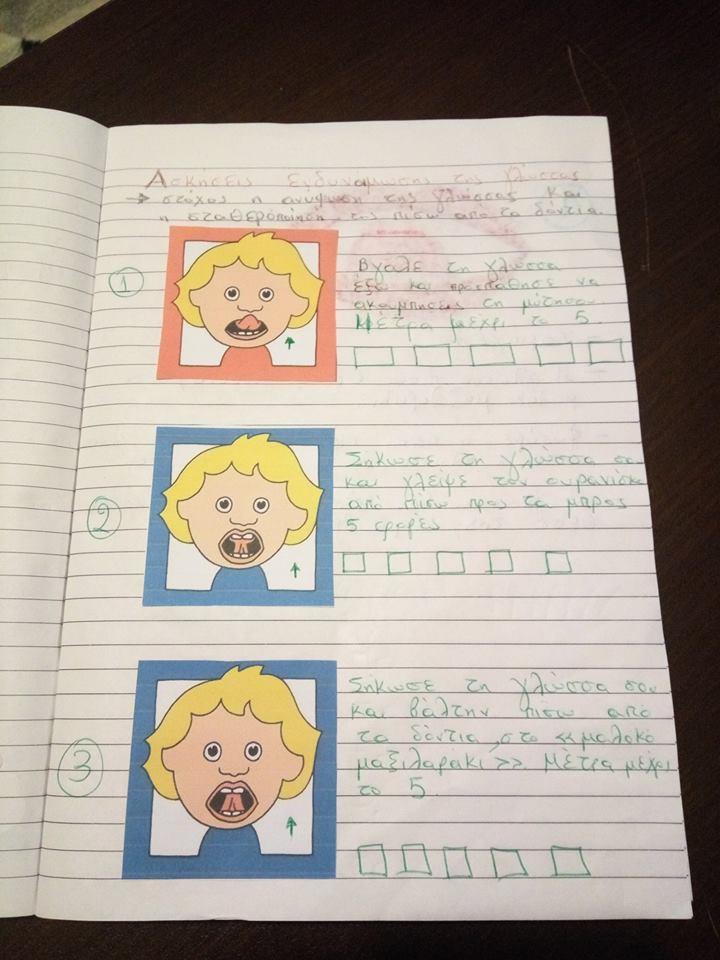 Ασκήσεις Ενδυνάμωσης της γλώσσας
→ στόχος η ανύψωση της γλώσσας και
η σταθεροποίηση της πίσω από τα δόντια.
1
Βγάλε τη γλώσσα
έξω και προσπάθησε να
ακουμπήσεις τη μύτη σου.
Μέτρα μέχρι το 5.
2
Σήκωσε τη γλώσσα σου
και γλείψε τον ουρανίσκο
από πίσω προς τα μπρος
5 φορές
3
Σήκωσε τη γλώσσα σου
και βάλτην πίσω από
τα δόντια, στο «μαλακό
μαξιλαράκι». Μέτρα μέχρι
το 5.